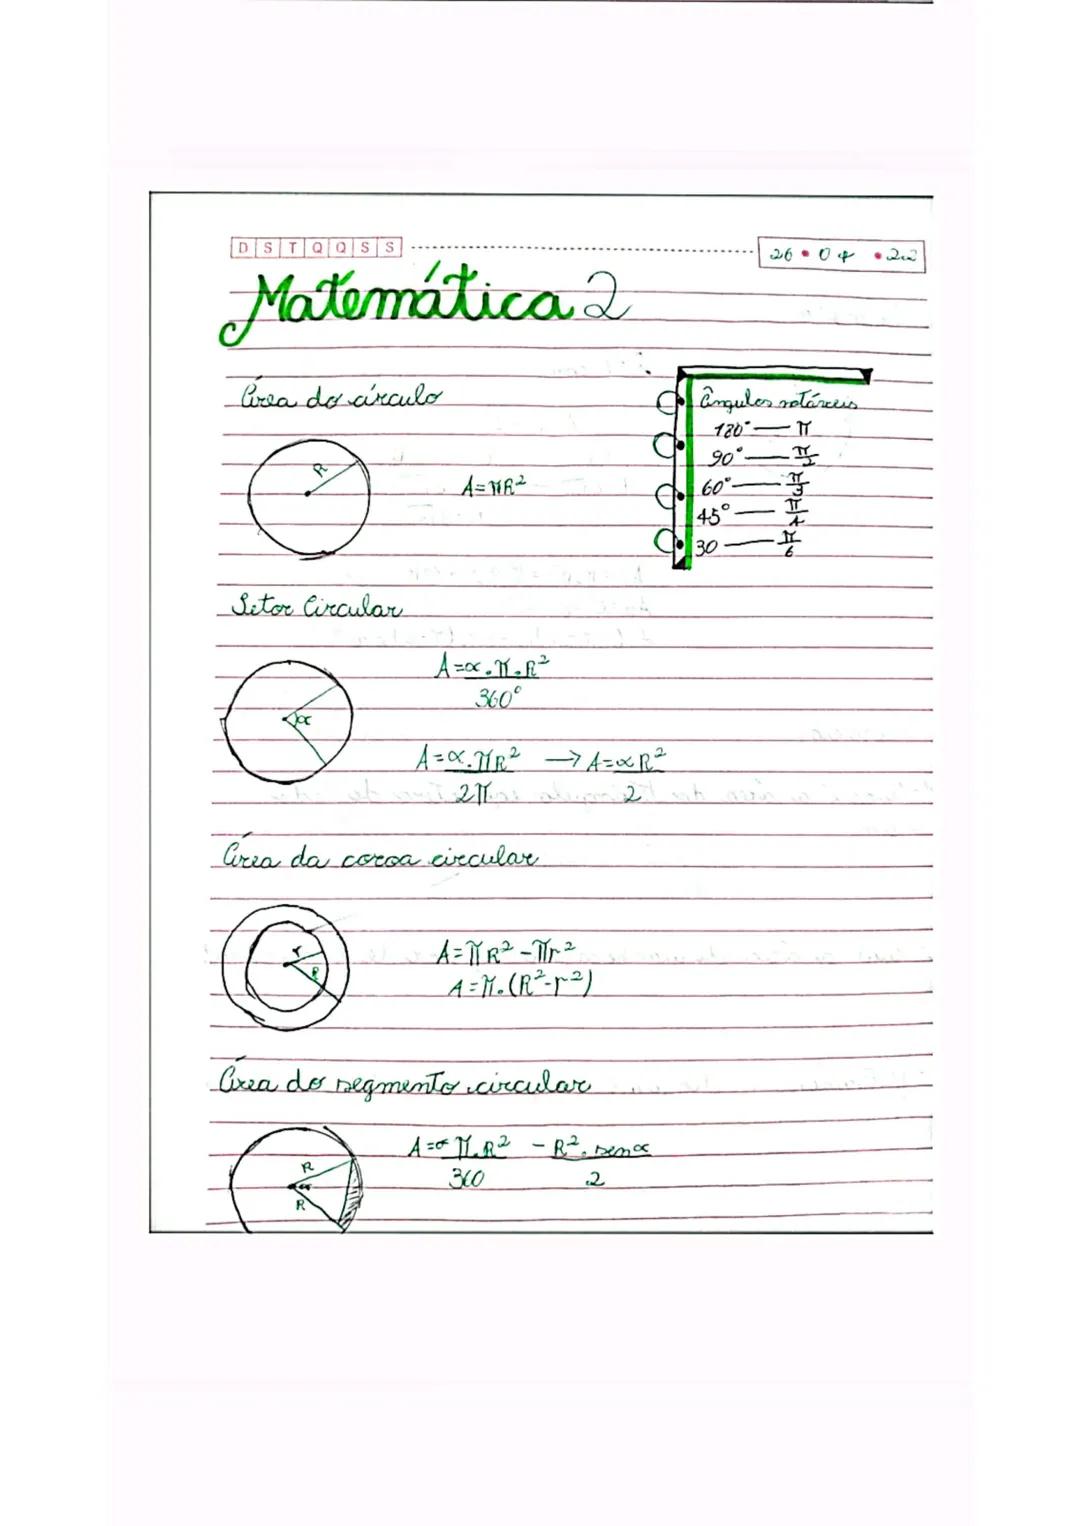 D S T Q Q S S
26 • 04 • 22
Matemática 2
Área do círculo
Ângulos notáveis
180° — π
90° — π/2
R
A=πR²
60° — π/3
45° — π/4
30 — π/6
Setor Circular
A=α.π.R²
360°
α
A=α.πR² → A=αR²
2π 2
Área da coroa circular
r
R
A=πR² - πr²
A=π.(R²-r²)
Área do segmento circular
A=α π.R² - R².senα
360 2
R
α
R